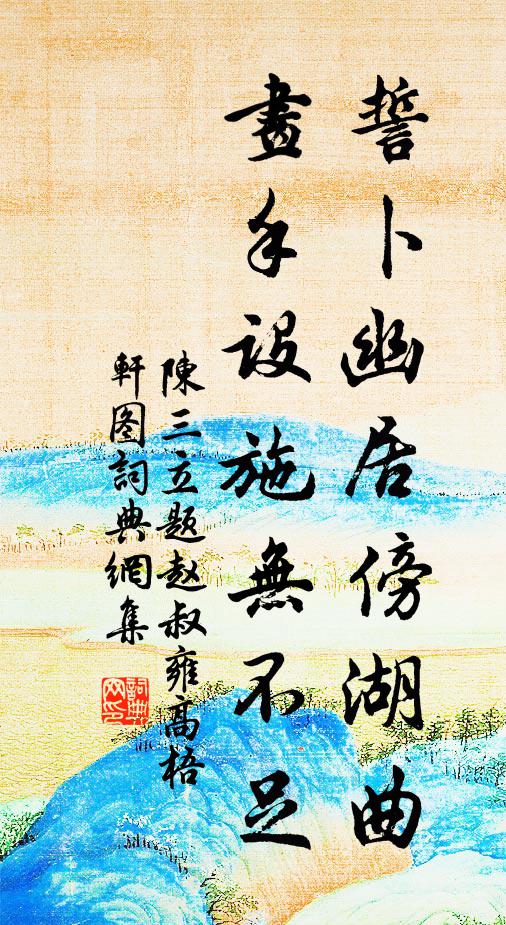 誓卜幽居傍湖曲
畫手設施無不足
陳三立题赵叔雍高梧
軒图詞典網集
詞典
网印